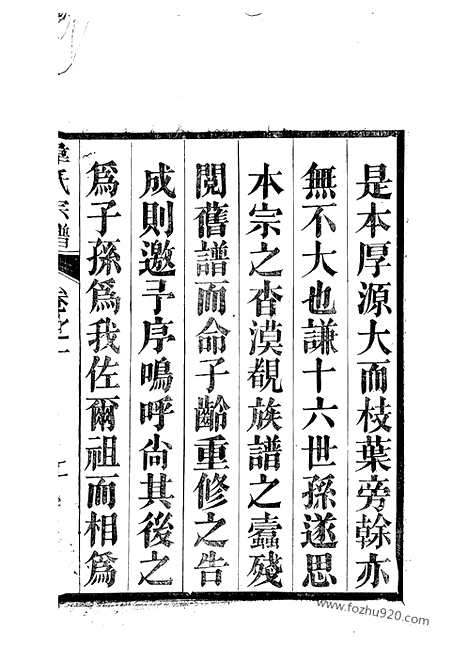 是本厚源大而枝葉旁榦亦
無不大也謙十六世孫遂思
本宗之杳漠覩族譜之蠹殘
閱舊譜而命子齡重修之告
成則邀予序鳴呼尙其後之
爲子孫爲我佐爾祖而相爲
氏宗譜
卷之二
www.fozhu920.com